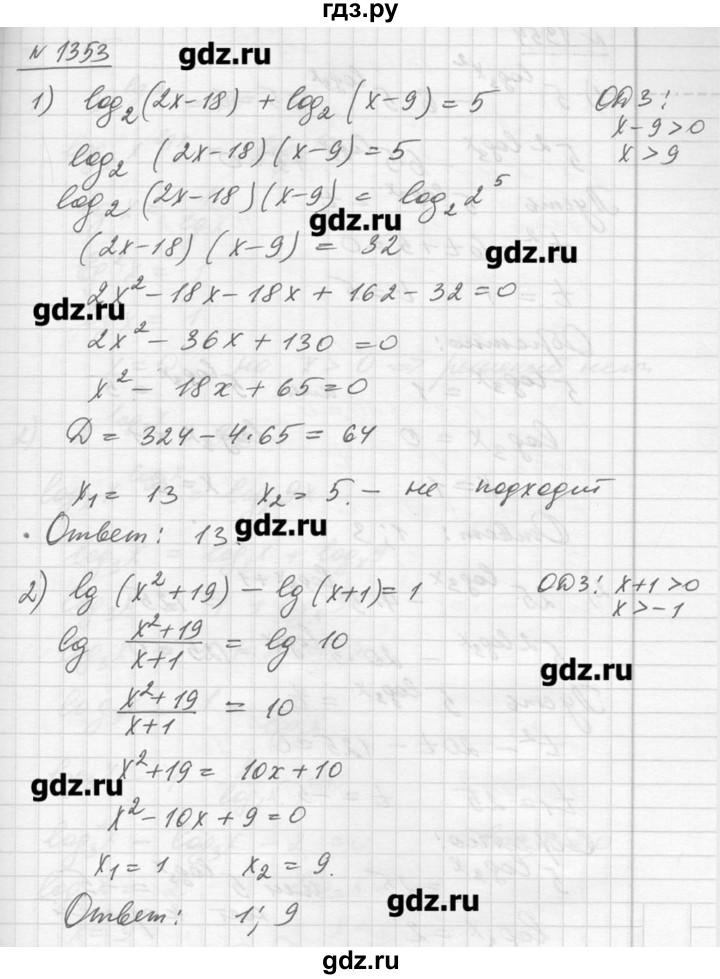 гдз.ру
N 1353
gdz.ru
1) log₂(2x-18) + log₂(x-9) = 5
ОДЗ:
x-9>0
x>9
log₂(2x-18)(x-9) = 5
log₂(2x-18)(x-9) = log₂2⁵
gdz.ru
(2x-18)(x-9) = 32
gdz.ru
2x²-18x-18x+162-32=0
gdz.ru
2x²-36x+130=0
x²-18x+65=0
D = 324-4·65 = 64
x₁ = 13 x₂ = 5. - не подходит
Ответ: 13.
gdz.ru
2) lg(x²+19) - lg(x+1) = 1
ОДЗ: x+1>0
x>-1
lg (x²+19)/(x+1) = lg 10
gdz.ru
(x²+19)/(x+1) = 10
x²+19 = 10x+10
gdz.ru
x²-10x+9=0
x₁ = 1 x₂ = 9.
Ответ: 1; 9
gdz.ru
гдз.ру